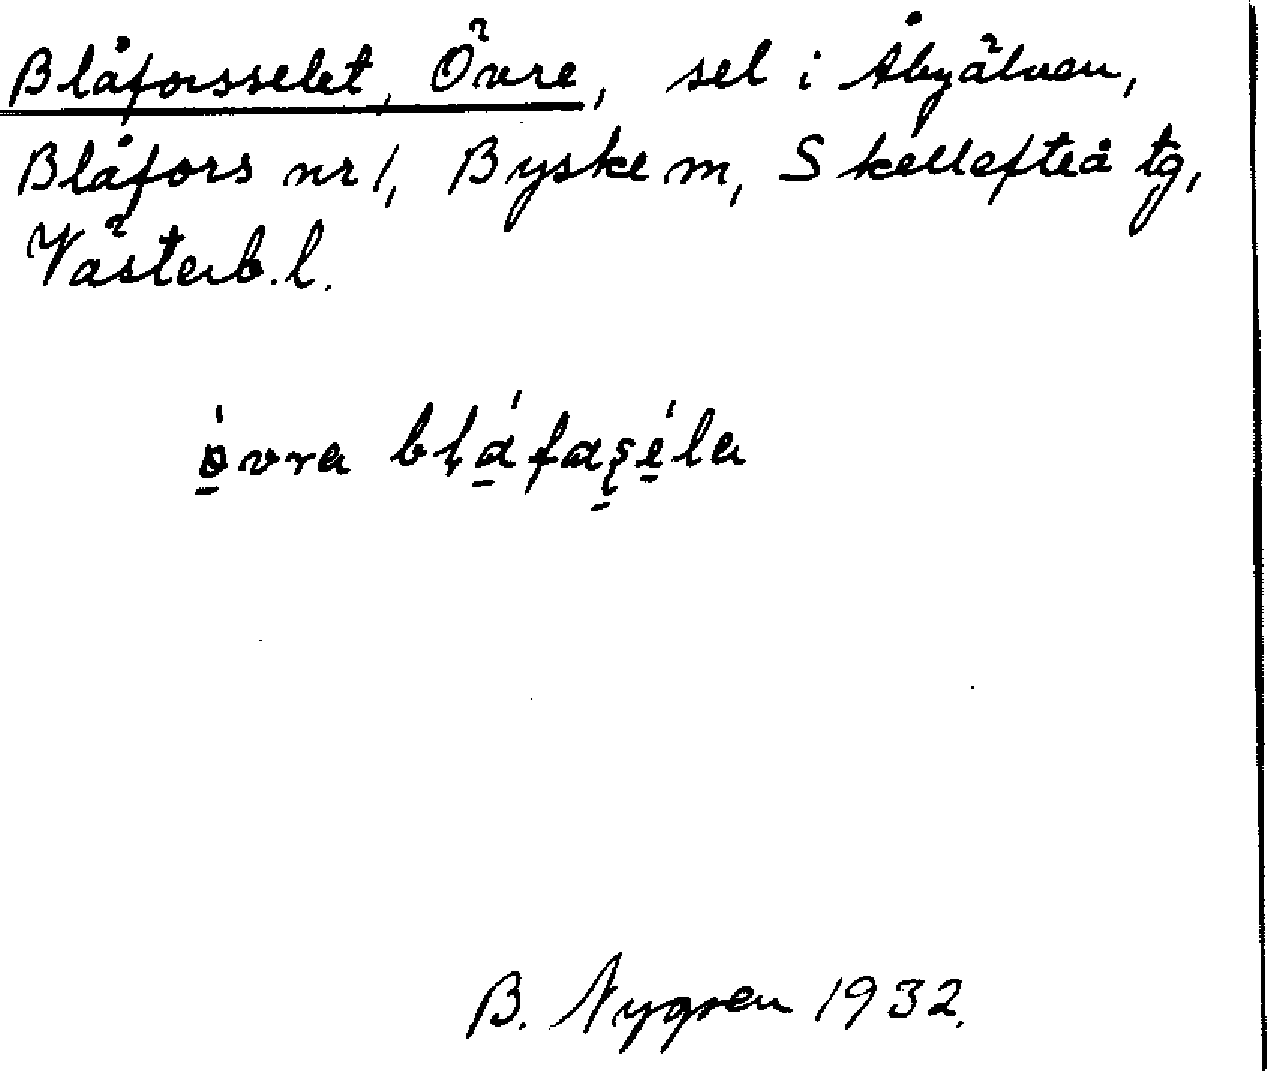 Blåforsselet, Övre, sel i Åbyälven,
Blåfors nr 1, Byske m, Skellefteå tg,
Västerb. l.
ö̱́vra bḷá̱fas̱̣é̱la
B. Nygren 1932.